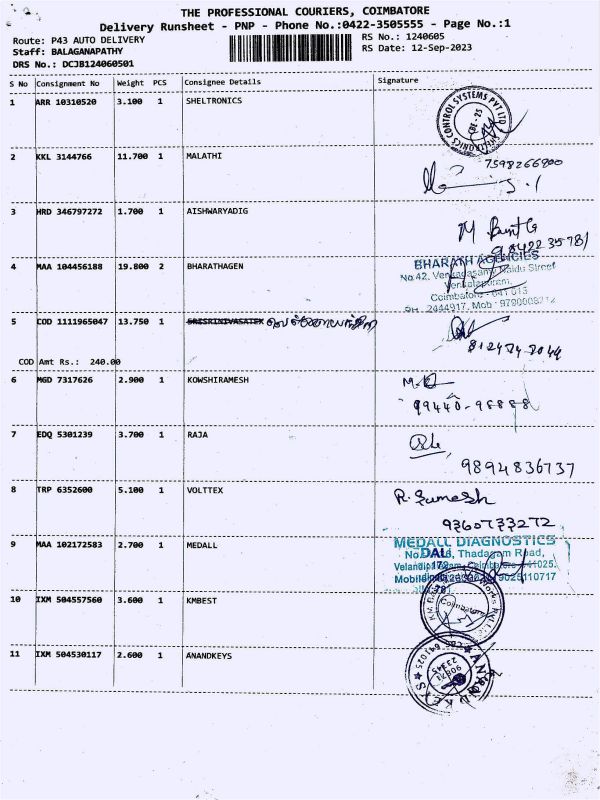 THE PROFESSIONAL COURIERS, COIMBATORE
Delivery Runsheet - PNP - Phone No.:0422-3505555 - Page No.:1
Route: P43 AUTO DELIVERY
Staff: BALAGANAPATHY
DRS No.: DCJB124060501
RS No.: 1240605
RS Date: 12-Sep-2023
S No Consignment No Weight PCS Consignee Details Signature
1 ARR 10310520 3.100 1 SHELTRONICS
CONTROL SYSTEMS PVT LTD
CBE - 25
2 KKL 3144766 11.700 1 MALATHI
7598266900
3 HRD 346797272 1.700 1 AISHWARYADIG
4 MAA 104456188 19.800 2 BHARATHAGEN
BHARATH AGENCIES
No.42, Venkadasamy Naidu Street
Coimbatore - 641 013
5 COD 1111965047 13.750 1 SRISRINIVASATEX
COD Amt Rs.: 240.00
6 MGD 7317626 2.900 1 KOWSHIRAMESH
99440-98888
7 EDQ 5301239 3.700 1 RAJA
9894836737
8 TRP 6352600 5.100 1 VOLTTEX
R. Sumesh
9360733272
9 MAA 102172583 2.700 1 MEDALL
MEDALL DIAGNOSTICS
Thadagam Road,
Coimbatore 641025.
Mobile 9025110717
10 IXM 504557560 3.600 1 KMBEST
Coimbatore
11 IXM 504530117 2.600 1 ANANDKEYS